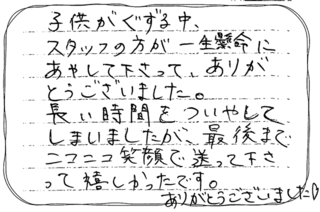 子供がぐずる中、
スタッフの方が一生懸命に
あやして下さって、ありが
とうございました。
長い時間をついやして
しまいましたが、最後まで
ニコニコ笑顔で送って下さ
って嬉しかったです。
ありがとうございました♡